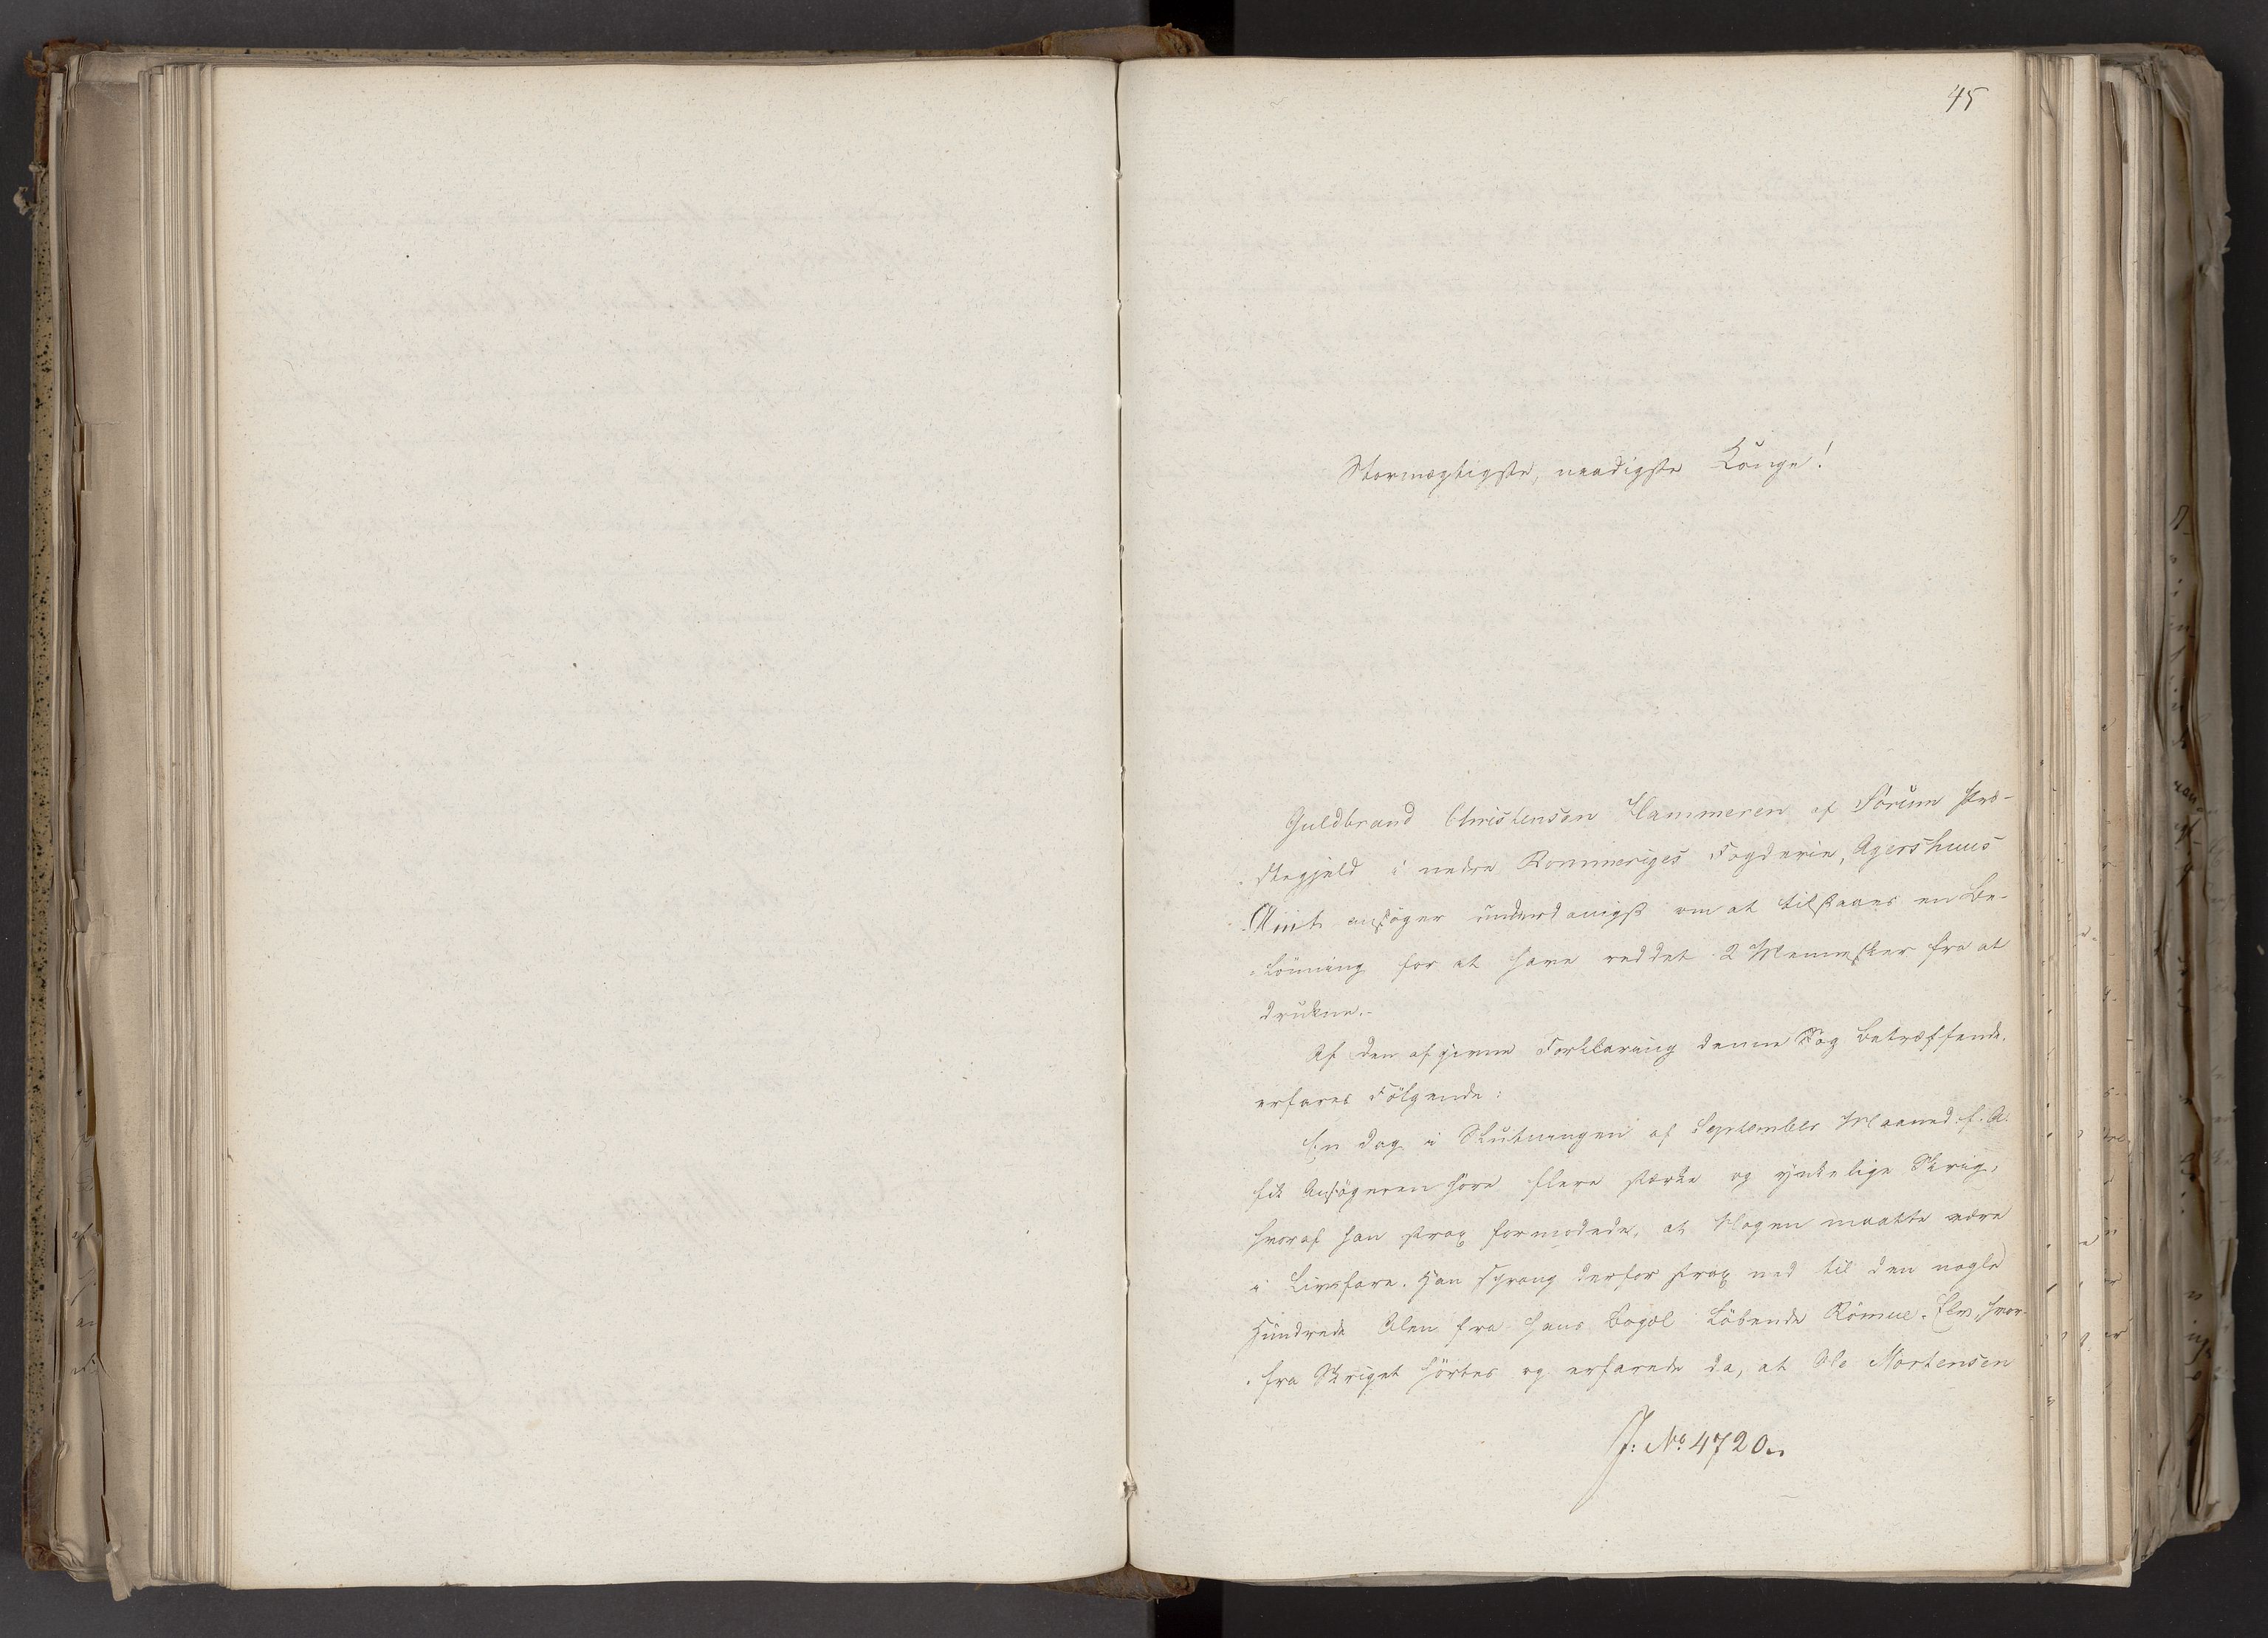 45
Stormægtigste, naadigste Konge!
Guldbrand Christensen Hammeren af Sörum Præ-
stegjeld i nedre Rommeriges Fogderie, Agershuus
Amt ansöger underdanigst om at tilstaaes en Be-
lönning for at have reddet 2 Mennesker fra at
drukne.-
Af den afgivne Forklaring denne Sag betræffende,
erfares Fölgende:
En Dag i Slutningen af September Maaned f. A.
fik Ansögeren höre flere stærke og ynkelige Skrig,
hvoraf han strax formodede, at Nogen maatte være
i Livsfare. Han sprang derfor strax ned til den nogle
Hundrede Alen fra hans Bopæl löbende Römue-Elv, hvor-
fra Skriget hörtes og erfarede da, at Ole Mortensen
J: No. 4720.